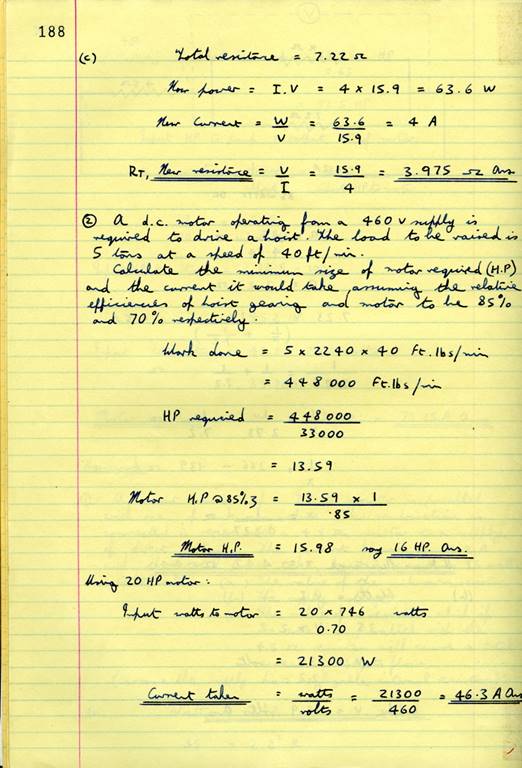 188
(c) Total resistance = 7.22 Ω
New power = I.V = 4 x 15.9 = 63.6 W
New Current = W/V = 63.6/15.9 = 4 A
RT, New resistance = V/I = 15.9/4 = 3.975 Ω Ans.
② A d.c. motor operating from a 460 v supply is
required to drive a hoist. The load to be raised is
5 tons at a speed of 40 ft/min.
Calculate the minimum size of motor required (H.P)
and the current it would take, assuming the relative
efficiencies of hoist gearing and motor to be 85%
and 70% respectively.
Work done = 5 x 2240 x 40 Ft.lbs/min
= 448000 Ft.lbs/min
HP required = 448000/33000
= 13.59
Motor H.P @ 85% = 13.59 x 1/.85
Motor H.P. = 15.98 say 16 HP. Ans.
Using 20 HP motor:
Input watts to motor = 20 x 746/0.70 watts
= 21300 W
Current taken = watts/volts = 21300/460 = 46.3 A Ans